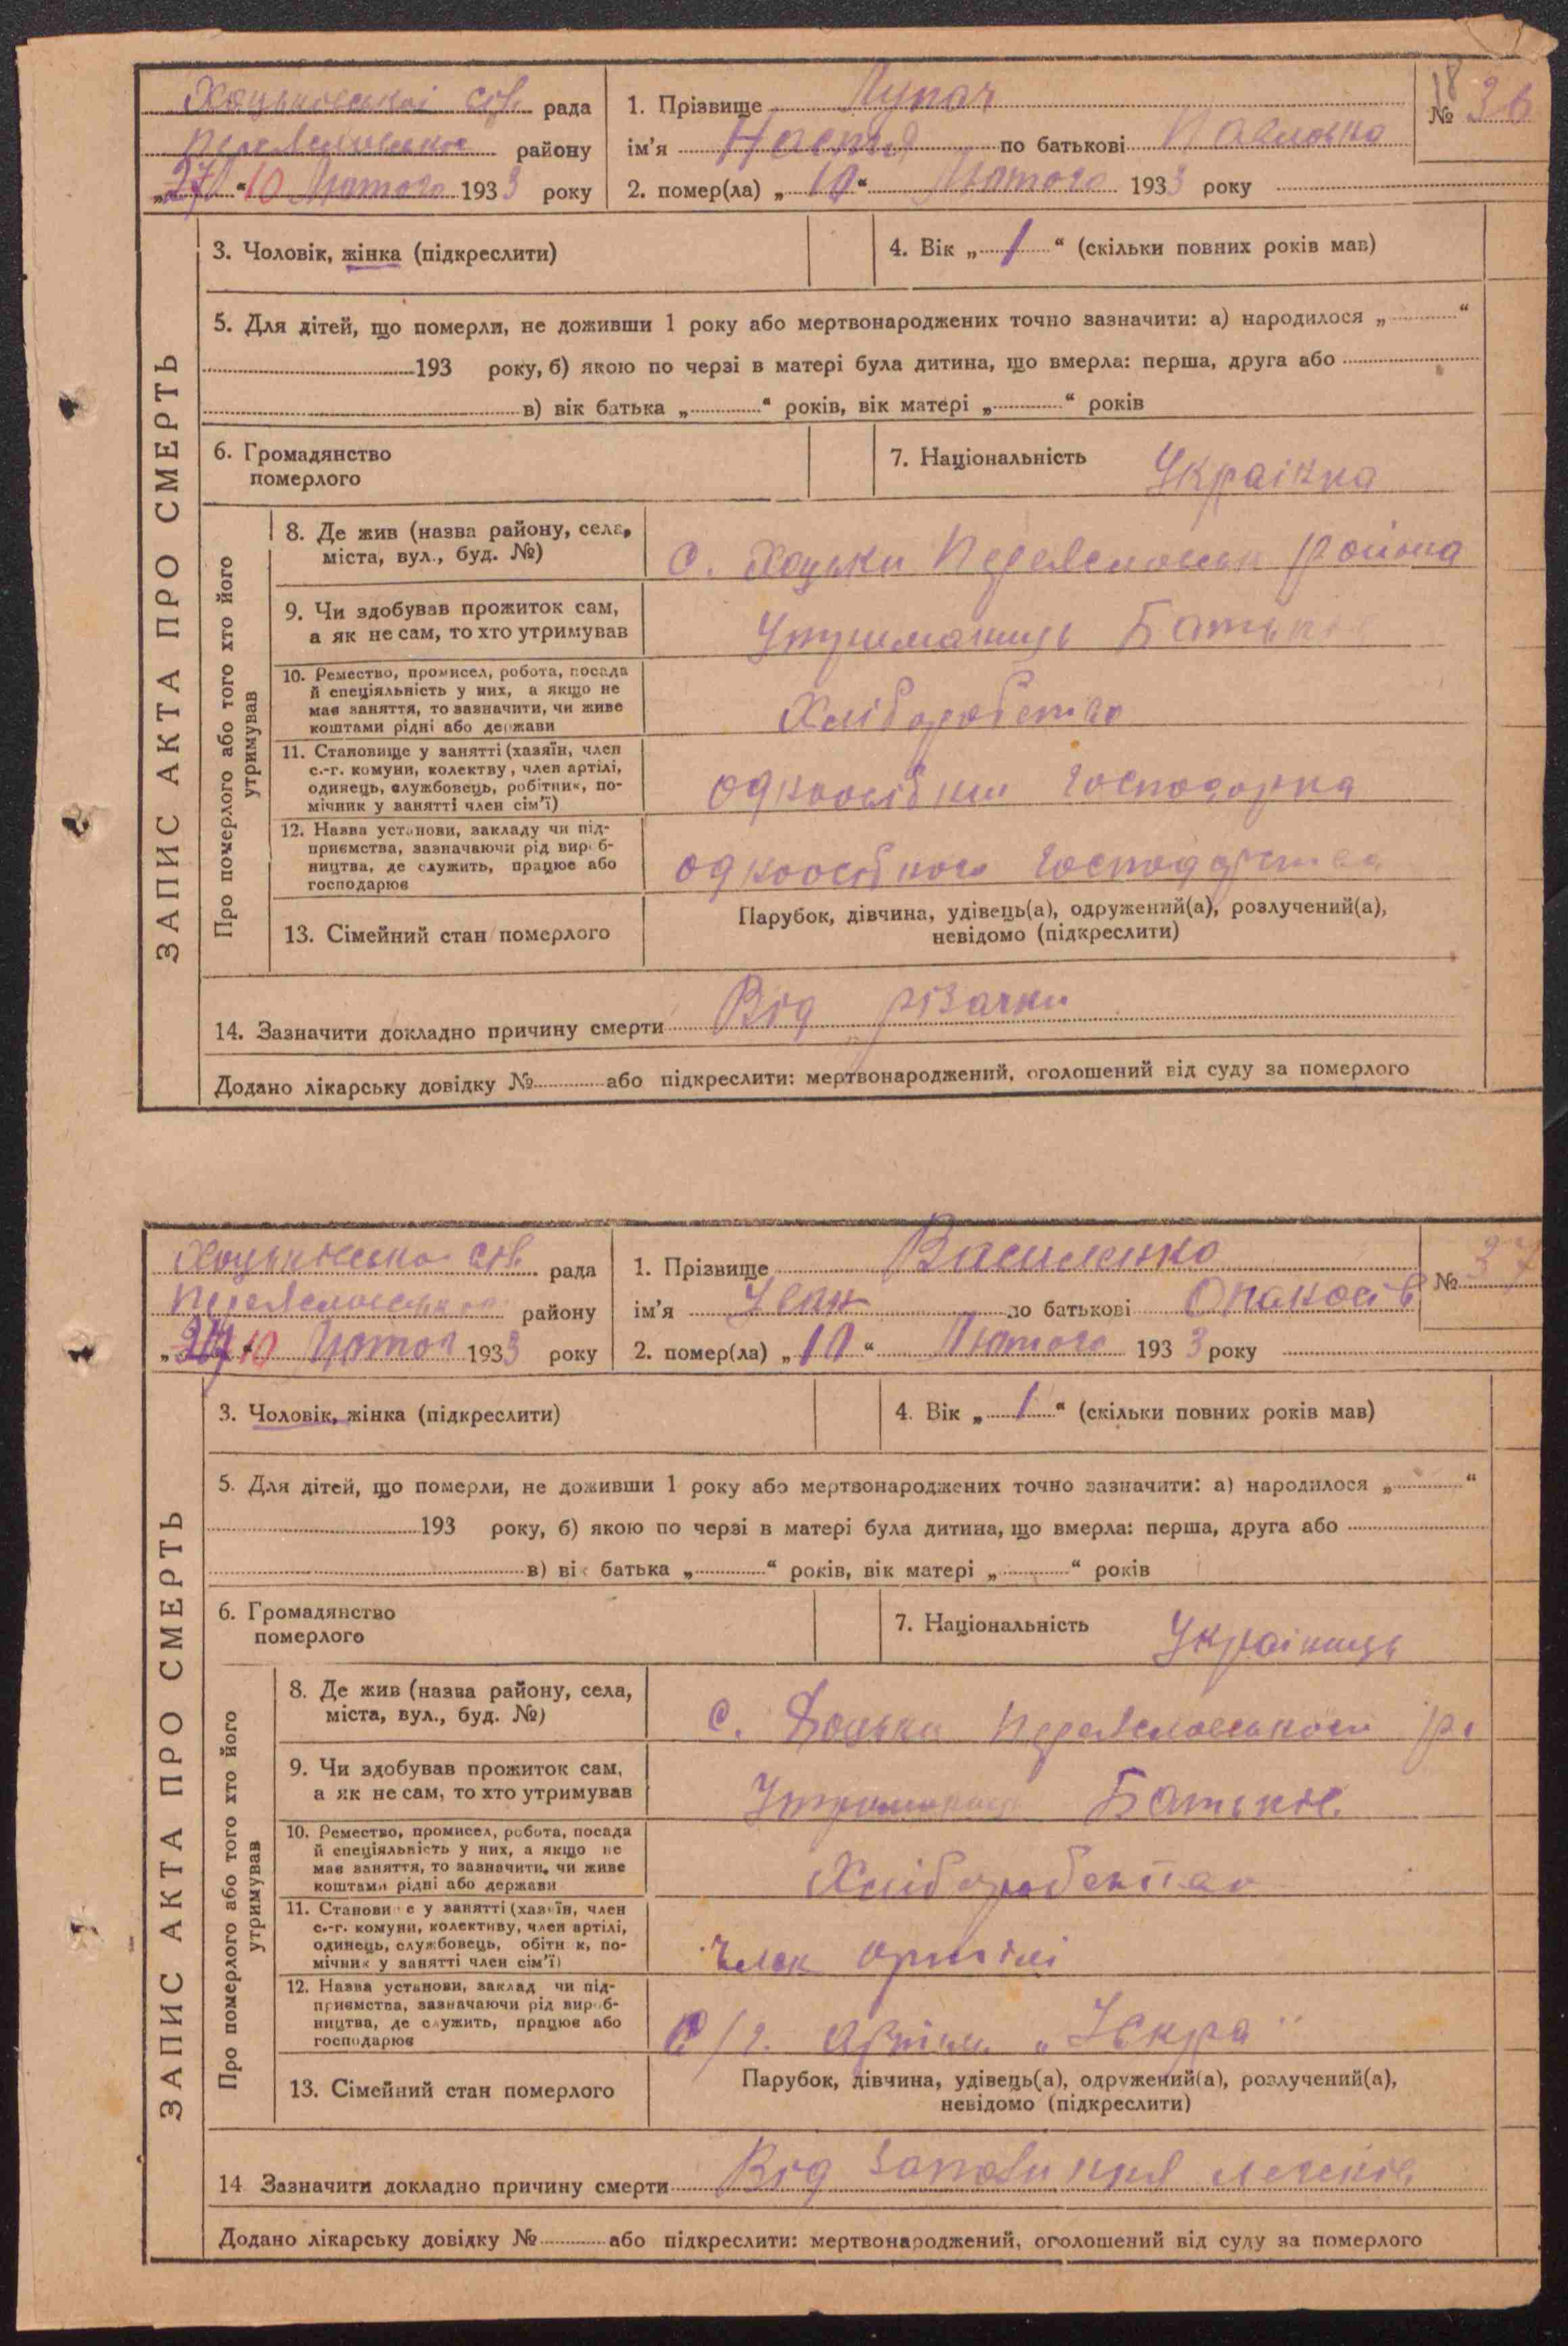 Хоцьківської сіль. рада
Переяславське району
„27“ 10 Лютого 1933 року
1. Прізвище Лупач
18
№ 36
ім’я Настя по батькові Павловна
2. помер(ла) „10“ Лютого 1933 року
ЗАПИС АКТА ПРО СМЕРТЬ
3. Чоловік, жінка (підкреслити)
4. Вік „1“ (скільки повних років мав)
5. Для дітей, що померли, не доживши 1 року або мертвонароджених точно зазначити: а) народилося „ “
193 року, б) якою по черзі в матері була дитина, що вмерла: перша, друга або
в) вік батька „ “ років, вік матері „ “ років
6. Громадянство
померлого
7. Національність Українка
Про померлого або того хто його
утримував
8. Де жив (назва району, села,
міста, вул., буд. №)
с. Хоцьки Переяславськ района
9. Чи здобував прожиток сам,
а як не сам, то хто утримував
Утриманець Батьків
10. Ремество, промисел, робота, посада
й спеціяльність у них, а якщо не
має заняття, то зазначити, чи живе
коштами рідні або держави
Хліборобство
11. Становище у занятті (хазяїн, член
с.-г. комуни, колектву, член артілі,
одинець, службовець, робітник, по-
мічник у занятті член сім’ї)
одноосібник господарка
12. Назва установи, закладу чи під-
приємства, зазначаючи рід вироб-
ництва, де служить, працює або
господарює
одноосібного господарства
13. Сімейний стан померлого
Парубок, дівчина, удівець(а), одружений(а), розлучений(а),
невідомо (підкреслити)
14. Зазначити докладно причину смерти Від різачки
Додано лікарську довідку № або підкреслити: мертвонароджений, оголошений від суду за померлого
Хоцьківська сіль. рада
Переяславського району
10 Лютог 1933 року
1. Прізвище Василенко
№ 37
ім’я Іван по батькові Опанасів
2. помер(ла) „10“ Лютого 1933 року
ЗАПИС АКТА ПРО СМЕРТЬ
3. Чоловік, жінка (підкреслити)
4. Вік „1“ (скільки повних років мав)
5. Для дітей, що померли, не доживши 1 року або мертвонароджених точно зазначити: а) народилося „ “
193 року, б) якою по черзі в матері була дитина, що вмерла: перша, друга або
в) вік батька „ “ років, вік матері „ “ років
6. Громадянство
померлого
7. Національність Українець
Про померлого або того хто його
утримував
8. Де жив (назва району, села,
міста, вул., буд. №)
с. Хоцьки Переяславського р.
9. Чи здобував прожиток сам,
а як не сам, то хто утримував
Утриманець Батьків
10. Ремество, промисел, робота, посада
й спеціяльність у них, а якщо не
має заняття, то зазначити, чи живе
коштами рідні або держави
Хліборобство
11. Становище у занятті (хазяїн, член
с.-г. комуни, колективу, член артілі,
одинець, службовець, робітник, по-
мічник у занятті член сім’ї)
Член артілі
12. Назва установи, заклад чи під-
приємства, зазначаючи рід вироб-
ництва, де служить, працює або
господарює
с/г. Артіль „Іскра“
13. Сімейний стан померлого
Парубок, дівчина, удівець(а), одружений(а), розлучений(а),
невідомо (підкреслити)
14 Зазначити докладно причину смерти Від запалення легенів
Додано лікарську довідку № або підкреслити: мертвонароджений, оголошений від суду за померлого